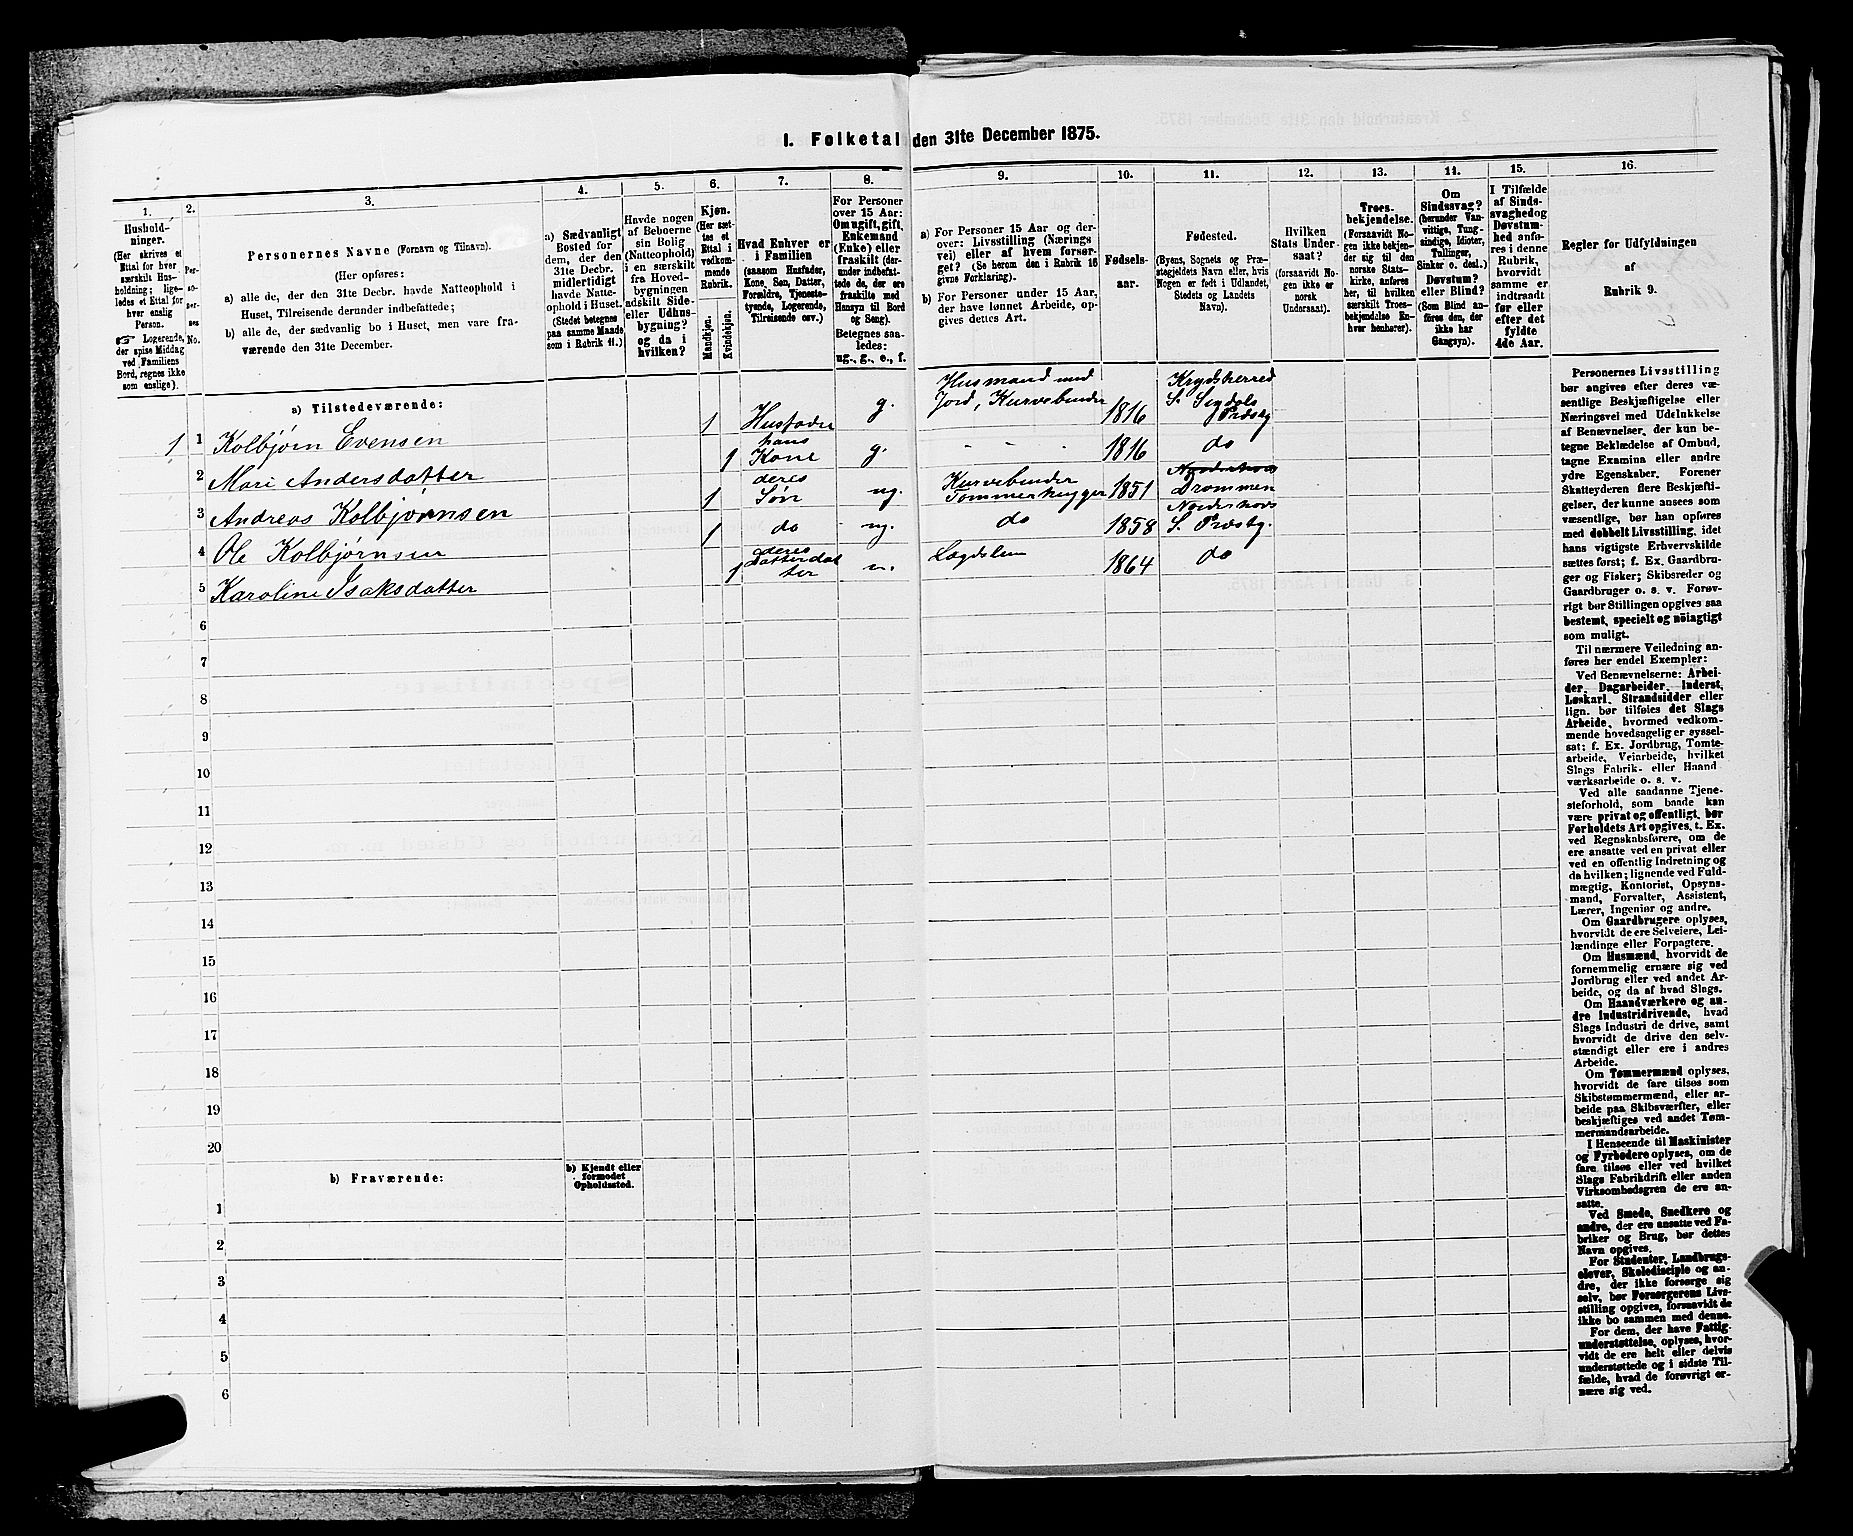 I. Folketal den 31te December 1875.
1.
Hushold-
ninger.
(Her skrives et
Ettal for hver
særskilt Hus-
holdning; lige-
ledes et Ettal for
hver enslig
Person.
☞ Logerende,
der spise Middag
ved Familiens
Bord, regnes ikke
som enslige).
2.
Per-
so-
ner-
nes
No.
3.
Personernes Navne (Fornavn og Tilnavn).
(Her opføres:
a) alle de, der den 31te Decbr. havde Natteophold i
Huset, Tilreisende derunder indbefattede;
b) alle de, der sædvanlig bo i Huset, men vare fra-
værende den 31te December.
4.
a) Sædvanligt
Bosted for
dem, der den
31te Decbr.
midlertidigt
havde Natte-
ophold i Huset.
(Stedet betegnes
paa samme Maade
som i Rubrik 11.)
5.
Havde nogen
af Beboerne
sin Bolig
(Natteophold)
i en særskilt
fra Hoved-
bygningen
adskilt Side-
eller Udhus-
bygning?
og da i
hvilken?
6.
Kjøn.
(Her sæt-
tes et
Ettal i
vedkom-
mende
Rubrik.
Mandkjøn.
Kvindekjøn.
7.
Hvad Enhver er
i Familien
(saasom Husfader,
Kone, Søn, Datter,
Forældre, Tjeneste-
tyende, Logerende,
Tilreisende osv.)
8.
For Personer
over 15 Aar:
Om ugift, gift,
Enkemand
(Enke) eller
fraskilt (der-
under indbefat-
tede de, der ere
fraskilte med
Hensyn til Bord
og Seng).
Betegnes saa-
ledes:
ug., g., e., f.
9.
a) For Personer 15 Aar og der-
over: Livsstilling (Nærings
vei) eller af hvem forsør-
get? (Se herom den i Rubrik 16
givne Forklaring).
b) For Personer under 15 Aar,
der have lønnet Arbeide, op-
gives dettes Art.
10.
Fødsels-
aar.
11.
Fødested.
(Byens, Sognets og Præ-
stegjeldets Navn eller, hvis
Nogen er født i Udlandet,
Stedets og Landets
Navn).
12.
Hvilken
Stats Under-
saat?
(forsaavidt No-
gen ikke er
norsk
Undersaat).
13.
Troes-
bekjendelse.
(Forsaavidt No-
gen ikke bekjen-
der sig til den
norske Stats-
kirke, anføres
her, til hvilken
særskilt Troes-
bekjendelse En-
hver henhører).
14.
Om
Sindssvag?
(herunder Van-
vittige, Tung-
sindige, Idioter,
Tullinger,
Sinker o. desl.)
Døvstum?
eller Blind?
(Som Blind an-
føres den, der
ikke har
Gangsyn).
15.
I Tilfælde
af Sinds-
svaghed og
Døvstum-
hed anfø-
res i denne
Rubrik,
hvorvidt
samme er
indtraadt
før eller
efter det
fyldte
4de Aar.
16.
Regler for Udfyldningen
af
Rubrik 9.
a) Tilstedeværende:
1 1 Kolbjørn Evensen 1 Husfader g. Husmand med Jord, Kurvebinder 1816 Krydsherred S. Sigdals Præstg
2 Mari Andersdatter 1 hans Kone g. - - 1816 do
3 Andreas Kolbjørnsen 1 deres Søn ug. Kurvebinder Tømmerhugger 1851 Drammen
4 Ole Kolbjørnsen 1 do ug. do 1858 Norderhovs S. Præstg.
5 Karoline Isaksdatter 1 deres Datterdatter u. Lægdslem 1864 do
6
7
8
9
10
11
12
13
14
15
16
17
18
19
20
b) Fraværende:
b) Kjendt eller
formodet
Opholdssted.
1
2
3
4
5
6
Personernes Livsstilling
bør angives efter deres væ-
sentlige Beskjæftigelse eller
Næringsvei med Udelukkelse
af Benævnelser, der kun be-
tegne Beklædelse af Ombud,
tagne Examina eller andre
ydre Egenskaber. Forener
Skatteyderen flere Beskjæfti-
gelser, der kunne ansees som
væsentlige, bør han opføres
med dobbelt Livsstilling, idet
hans vigtigste Erhvervskilde
sættes først; f. Ex. Gaardbru-
ger og Fisker; Skibsreder og
Gaardbruger o. s. v. Forøv-
rigt bør Stillingen opgives saa
bestemt, specielt og nöiagtigt
som muligt.
Til nærmere Veiledning an-
føres her endel Exempler:
Ved Benævnelserne: Arbei-
der, Dagarbeider, Inderst,
Løskarl, Strandsidder eller
lign. bør tilføies det Slags
Arbeide, hvormed vedkom-
mende hovedsagelig er syssel-
sat; f. Ex. Jordbrug, Tomte-
arbeide, Veiarbeide, hvilket
Slags Fabrik- eller Haand
værksarbeide o. s. v.
Ved alle saadanne Tjene-
steforhold, som baade kan
være privat og offentligt, bør
Forholdets Art opgives, t. Ex.
ved Regnskabsførere, om de
ere ansatte ved en privat eller
ved en offentlig Indretning og
da hvilken; lignende ved Fuld-
mægtig, Kontorist, Opsyns-
mand, Forvalter, Assistent,
Lærer, Ingeniør og andre.
Om Gaardbrugere oplyses,
hvorvidt de ere Selveiere, Lei-
lændinge eller Forpagtere.
Om Husmænd, hvorvidt de
fornemmelig ernære sig ved
Jordbrug eller ved andet Ar-
beide, og da af hvad Slags.
Om Haandværkere og an-
dre Industridrivende, hvad
Slags Industri de drive, samt
hvorvidt de drive den selv-
stændigt eller ere i andres
Arbeide.
Om Tømmermænd oplyses,
hvorvidt de fare tilsøs som
Skibstømmermænd, eller ar-
beide paa Skibsværfter, eller
beskjæftiges ved andet Tøm-
mermandsarbeide.
I Henseende til Maskinister
og Fyrbødere oplyses, om de
fare tilsøs eller ved hvilket
Slags Fabrikdrift eller anden
Virksombedsgren de ere an-
satte.
Ved Smede, Snedkere og
andre, der ere ansatte ved Fa-
briker og Brug, bør dettes
Navn opgives.
For Studenter, Landbrugs-
elever, Skoledisciple og an-
dre, der ikke forsørge sig
selv, bør Forsørgerens Livs-
stilling opgives, forsaavidt de
ikke bo sammen med denne.
For dem, der have Fattig-
understøttelse, oplyses, hvor-
vidt de ere helt eller delvis
understøttede og i sidste Til-
fælde, hvad de forøvrigt er-
nære sig ved.